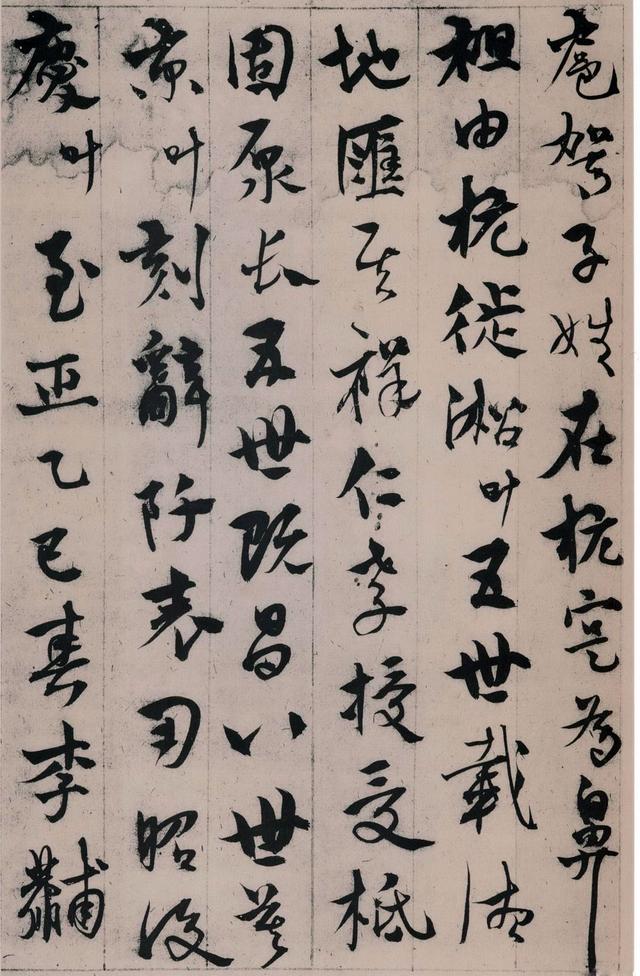 子姓在杭寔為鼻
祖由杭徙淞叶五世載
地匯其祥仁孝授受柢
固原長五世既昌八世莫
京叶刻辭阡表用昭後
慶叶至正乙巳春李黼